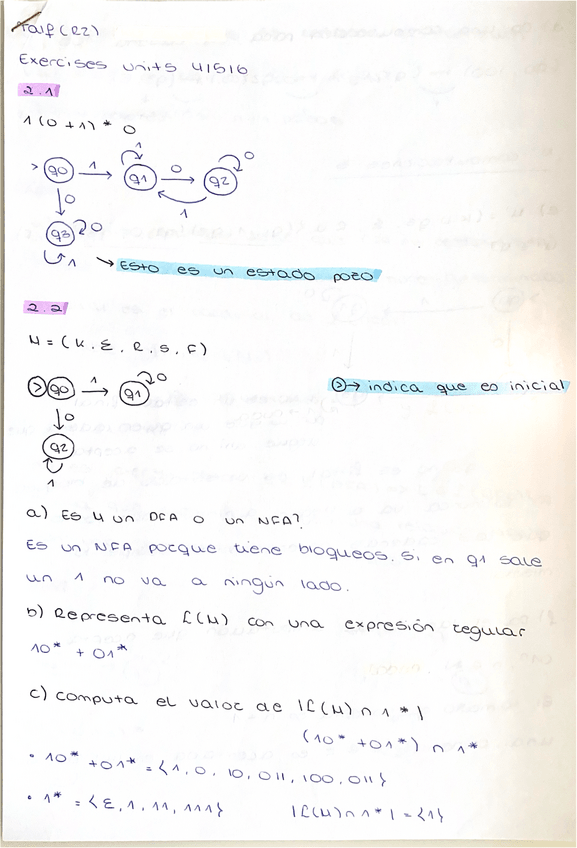 Talf (E2)
Exercises units 4/5/6
2.1
1(0+1)*0
> q0 1 q1 1 0 q2 0
0 1
q3 0
1 → Esto es un estado pozo
2.2
M = (K, Σ, R, S, F)
> q0 1 q1 0
> → indica que es inicial
0
q2
1
a) Es M un DFA o un NFA?
Es un NFA porque tiene bloqueos. Si en q1 sale
un 1 no va a ningún lado.
b) Representa L(M) con una expresión regular
10* + 01*
c) computa el valor de |L(M) ∩ 1*|
(10* + 01*) ∩ 1*
• 10* + 01* = {1, 0, 10, 011, 100, 011}
• 1* = {ε, 1, 11, 111} |L(M) ∩ 1*| = {1}